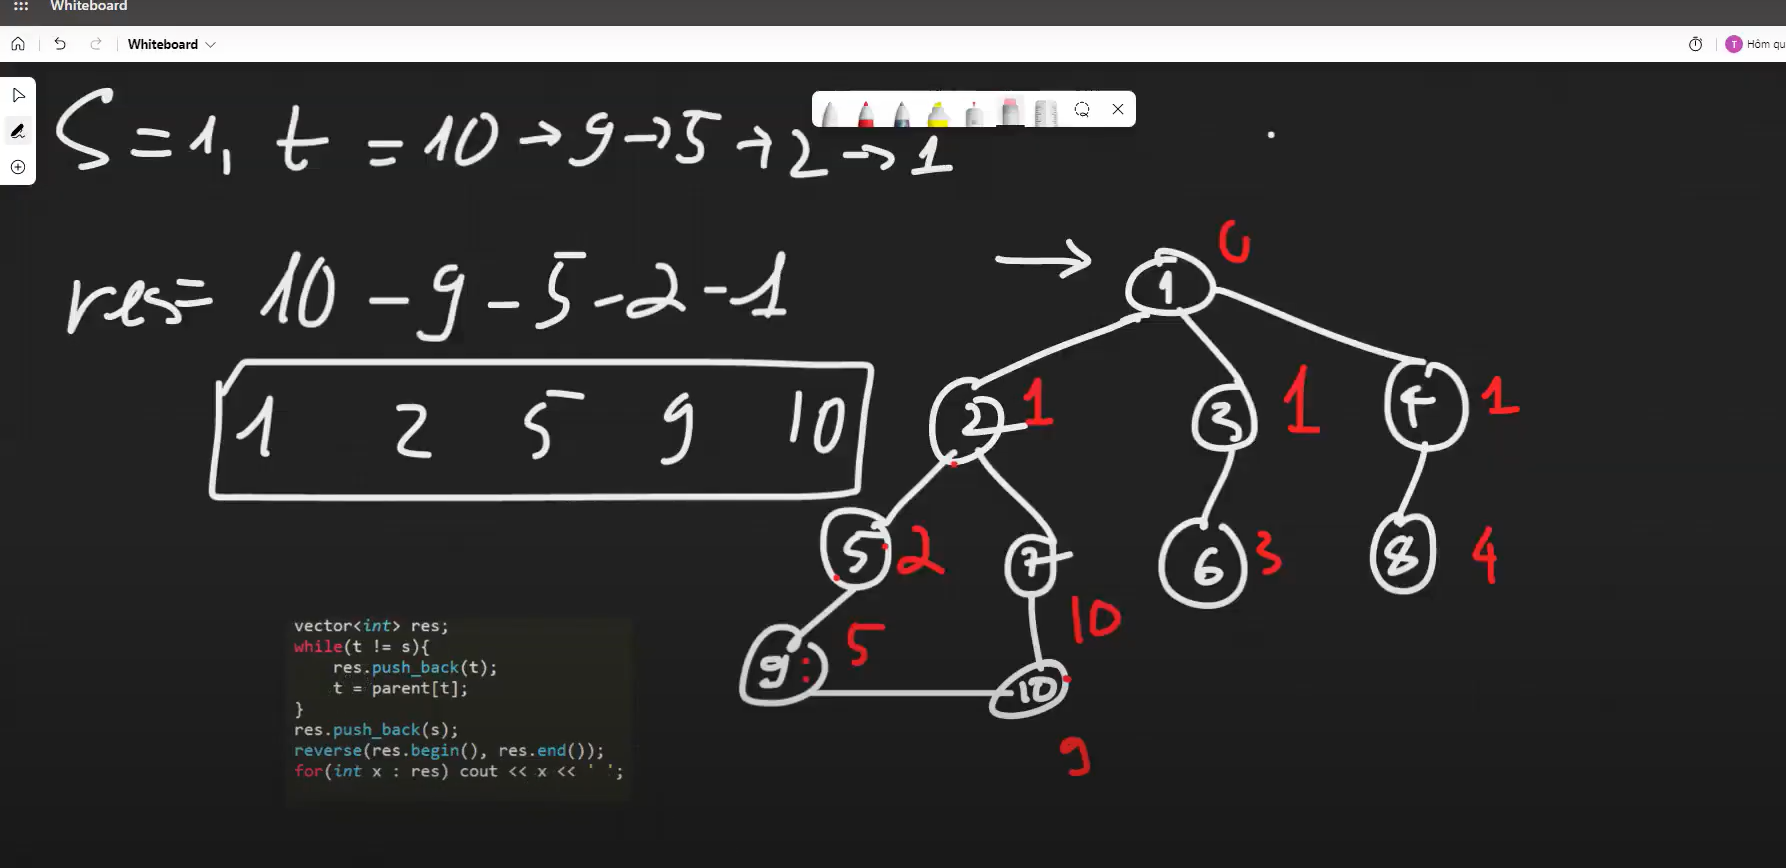 Whiteboard
Whiteboard
T Hôm qu
S = 1, t = 10 → 9 → 5 → 2 → 1
res = 10 - 9 - 5 - 2 - 1
1 2 5 9 10
1 0
2 1 3 1 4 1
5 2 7 6 3 8 4
10
9 5 10
9
vector<int> res;
while(t != s){
res.push_back(t);
t = parent[t];
}
res.push_back(s);
reverse(res.begin(), res.end());
for(int x : res) cout << x << ' ';